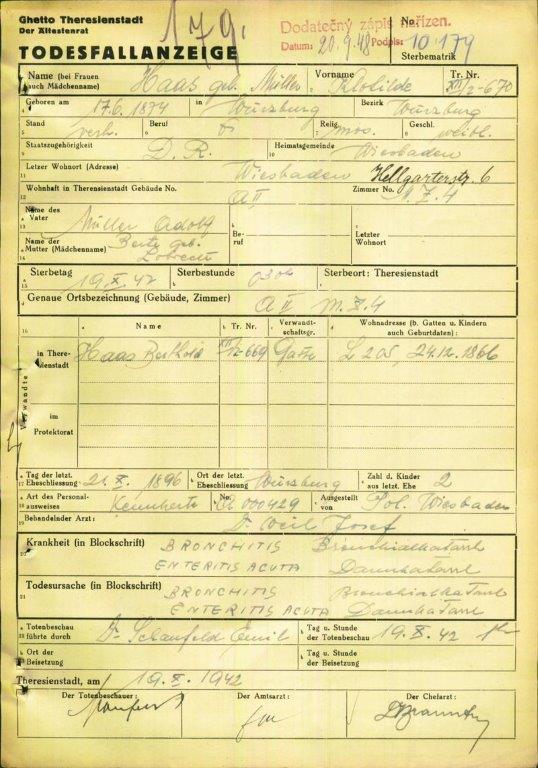 Ghetto Theresienstadt
Der Ältestenrat
179.
Dodatečný zápis nařízen.
Datum: 20.9.48 Podpis:
No.
10179
Sterbematrik
TODESFALLANZEIGE
Name (bei Frauen auch Mädchenname) Haas geb. Müller Vorname Klotilde Tr. Nr. XII/2-670
Geboren am 17.6.1874 in Würzburg Bezirk Würzburg
Stand verh. Beruf Relig. mos. Geschl. weibl.
Staatszugehörigkeit D. R. Heimatsgemeinde Wiesbaden
Letzer Wohnort (Adresse) Wiesbaden Hellgarterstr. 6
Wohnhaft in Theresienstadt Gebäude No. A II Zimmer No. M.Z.4
Name des Vater Müller Adolf Beruf Letzter Wohnort
Name der Mutter (Mädchenname) Berta geb.
Sterbetag 19 X. 42 Sterbestunde Sterbeort: Theresienstadt
Genaue Ortsbezeichnung (Gebäude, Zimmer) A II M.Z.4
Name Tr. Nr. Verwandtschaftsgr. Wohnadresse (b. Gatten u. Kindern auch Geburtdaten):
Verwandte
in Theresienstadt Haas Berthold XII/2-669 Gatte L 205, 24.12.1866
im Protektorat
Tag der letzt. Eheschliessung 21. X. 1896 Ort der letzt. Eheschliessung Würzburg Zahl d. Kinder aus letzt. Ehe 2
Art des Personalausweises Kennkarte No. A 000429 Ausgestellt von Pol. Wiesbaden
Behandelnder Arzt: Dr Weil Josef
Krankheit (in Blockschrift) BRONCHITIS Bronchialkatarrh
ENTERITIS ACUTA Darmkatarrh
Todesursache (in Blockschrift) BRONCHITIS Bronchialkatarrh
ENTERITIS ACUTA Darmkatarrh
Totenbeschau führte durch Dr Schanfeld Emil Tag u. Stunde der Totenbeschau 19. X. 42
Ort der Beisetzung Tag u. Stunde der Beisetzung
Theresienstadt, am 19. X. 1942
Der Totenbeschauer: Der Amtsarzt: Der Chefarzt: